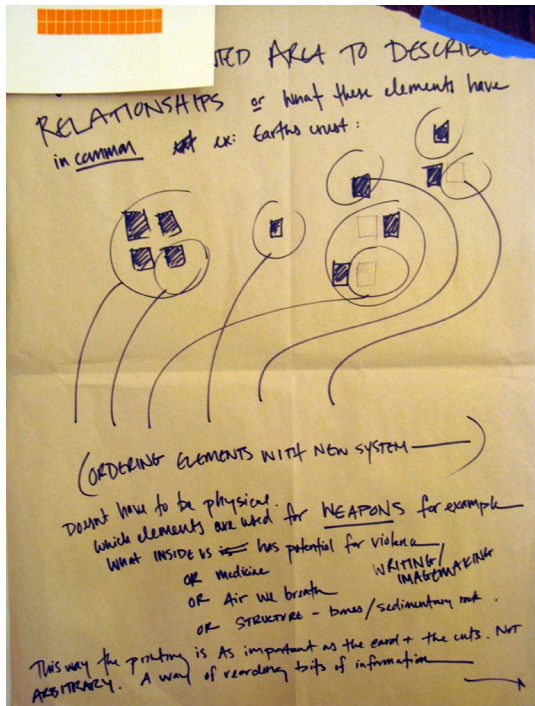 TED AREA TO DESCRIBE
RELATIONSHIPS or what these elements have
in common ex: Earths crust:
(ORDERING ELEMENTS WITH NEW SYSTEM —)
Doesnt have to be physical.
which elements are used for WEAPONS for example
what INSIDE US has potential for violence
OR medicine
WRITING/
IMAGEMAKING
OR Air we breath
OR STRUCTURE - bones/sedimentary rock.
This way the printing is As important as the card + the cuts. NOT
ARBITRARY. A way of reording bits of information